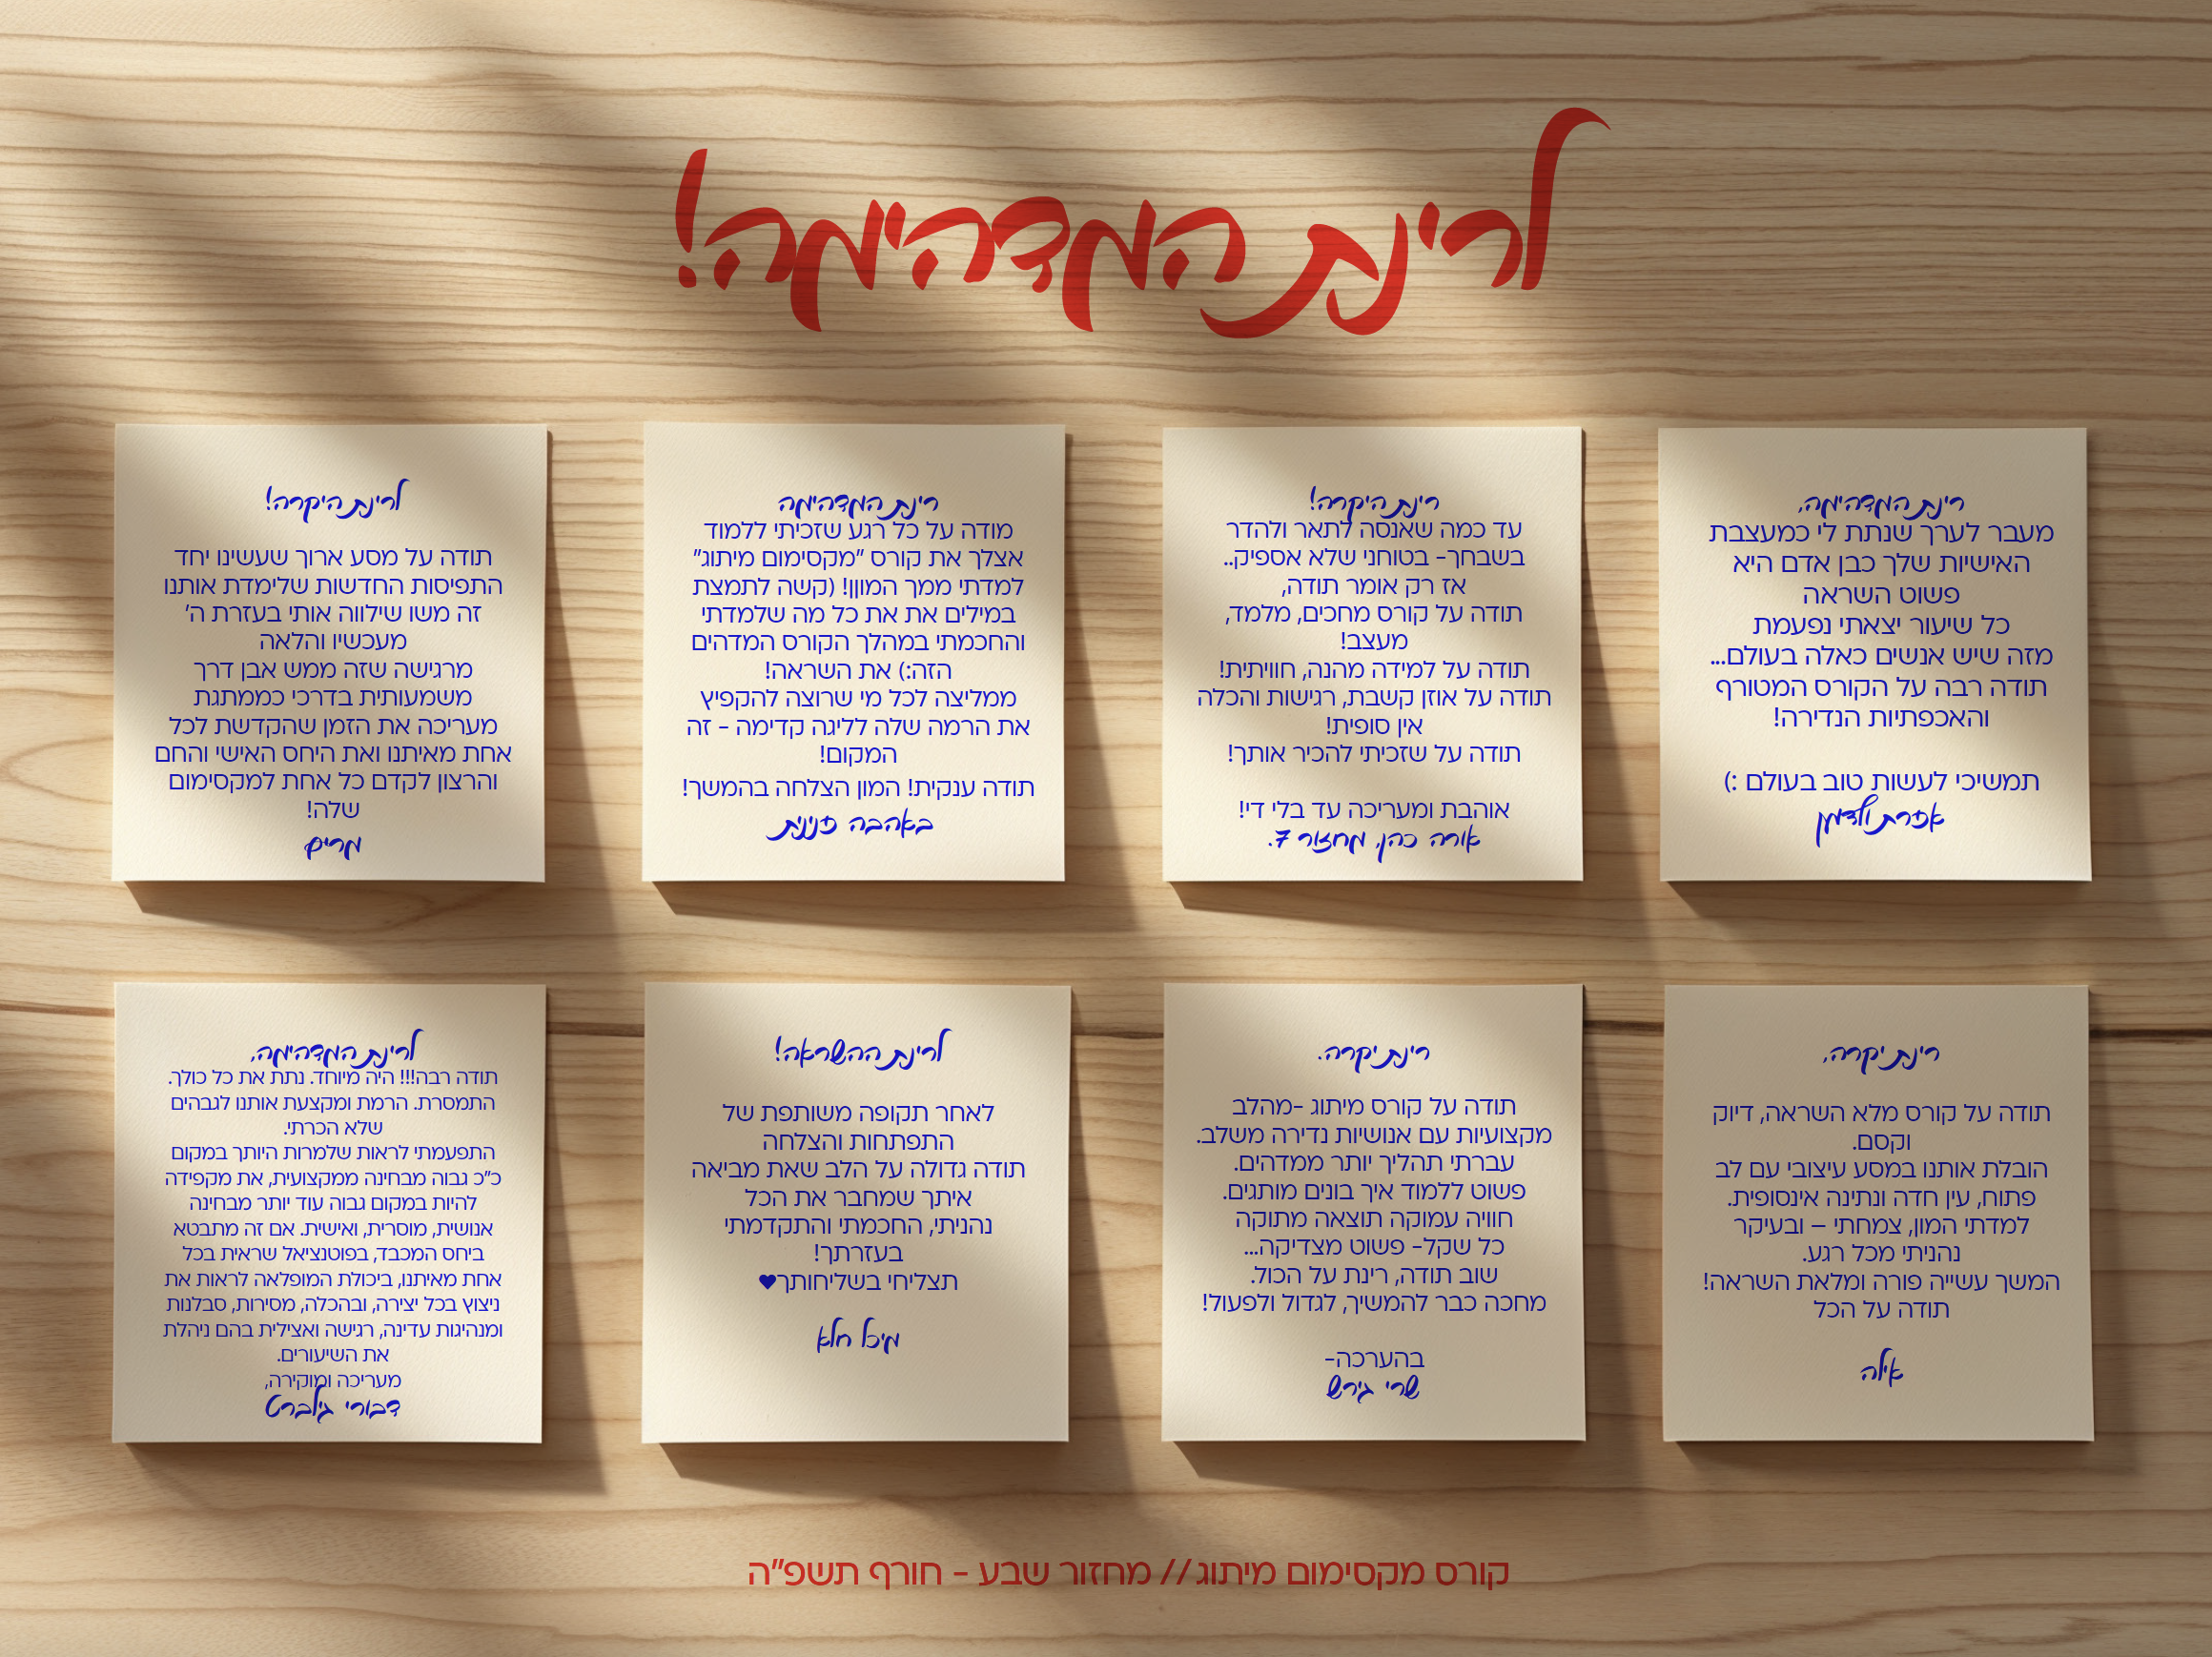 לרינת המדהימה!
רינת המדהימה,
מעבר לערך שנתת לי כמעצבת
האישיות שלך כבן אדם היא
פשוט השראה
כל שיעור יצאתי נפעמת
מזה שיש אנשים כאלה בעולם...
תודה רבה על הקורס המטורף
והאכפתיות הנדירה!
תמשיכי לעשות טוב בעולם :)
אפרת ולדמן
רינת היקרה!
עד כמה שאנסה לתאר ולהדר
בשבחך- בטוחני שלא אספיק..
אז רק אומר תודה,
תודה על קורס מחכים, מלמד,
מעצב!
תודה על למידה מהנה, חוויתית!
תודה על אוזן קשבת, רגישות והכלה
אין סופית!
תודה על שזכיתי להכיר אותך!
אוהבת ומעריכה עד בלי די!
אורה כהן, מחזור 7.
רינת המדהימה
מודה על כל רגע שזכיתי ללמוד
אצלך את קורס "מקסימום מיתוג"
למדתי ממך המוןן! (קשה לתמצת
במילים את את כל מה שלמדתי
והחכמתי במהלך הקורס המדהים
הזה:) את השראה!
ממליצה לכל מי שרוצה להקפיץ
את הרמה שלה לליגה קדימה - זה
המקום!
תודה ענקית! המון הצלחה בהמשך!
באהבה פנינית
לרינת היקרה!
תודה על מסע ארוך שעשינו יחד
התפיסות החדשות שלימדת אותנו
זה משו שילווה אותי בעזרת ה'
מעכשיו והלאה
מרגישה שזה ממש אבן דרך
משמעותית בדרכי כממתגת
מעריכה את הזמן שהקדשת לכל
אחת מאיתנו ואת היחס האישי והחם
והרצון לקדם כל אחת למקסימום
שלה!
מרים
רינת יקרה,
תודה על קורס מלא השראה, דיוק
וקסם.
הובלת אותנו במסע עיצובי עם לב
פתוח, עין חדה ונתינה אינסופית.
למדתי המון, צמחתי – ובעיקר
נהניתי מכל רגע.
המשך עשייה פורה ומלאת השראה!
תודה על הכל
אילה
רינת יקרה.
תודה על קורס מיתוג -מהלב
מקצועיות עם אנושיות נדירה משלב.
עברתי תהליך יותר ממדהים.
פשוט ללמוד איך בונים מותגים.
חוויה עמוקה תוצאה מתוקה
כל שקל- פשוט מצדיקה...
שוב תודה, רינת על הכול.
מחכה כבר להמשיך, לגדול ולפעול!
בהערכה-
שרי גירש
לרינת ההשראה!
לאחר תקופה משותפת של
התפתחות והצלחה
תודה גדולה על הלב שאת מביאה
איתך שמחבר את הכל
נהניתי, החכמתי והתקדמתי
בעזרתך!
תצליחי בשליחותך♥
מיכל חלא
לרינת המדהימה,
תודה רבה!!! היה מיוחד. נתת את כל כולך.
התמסרת. הרמת ומקצעת אותנו לגבהים
שלא הכרתי.
התפעמתי לראות שלמרות היותך במקום
כ"כ גבוה מבחינה ממקצועית, את מקפידה
להיות במקום גבוה עוד יותר מבחינה
אנושית, מוסרית, ואישית. אם זה מתבטא
ביחס המכבד, בפוטנציאל שראית בכל
אחת מאיתנו, ביכולת המופלאה לראות את
ניצוץ בכל יצירה, ובהכלה, מסירות, סבלנות
ומנהיגות עדינה, רגישה ואצילית בהם ניהלת
את השיעורים.
מעריכה ומוקירה,
דבורי גילברט
קורס מקסימום מיתוג // מחזור שבע - חורף תשפ"ה